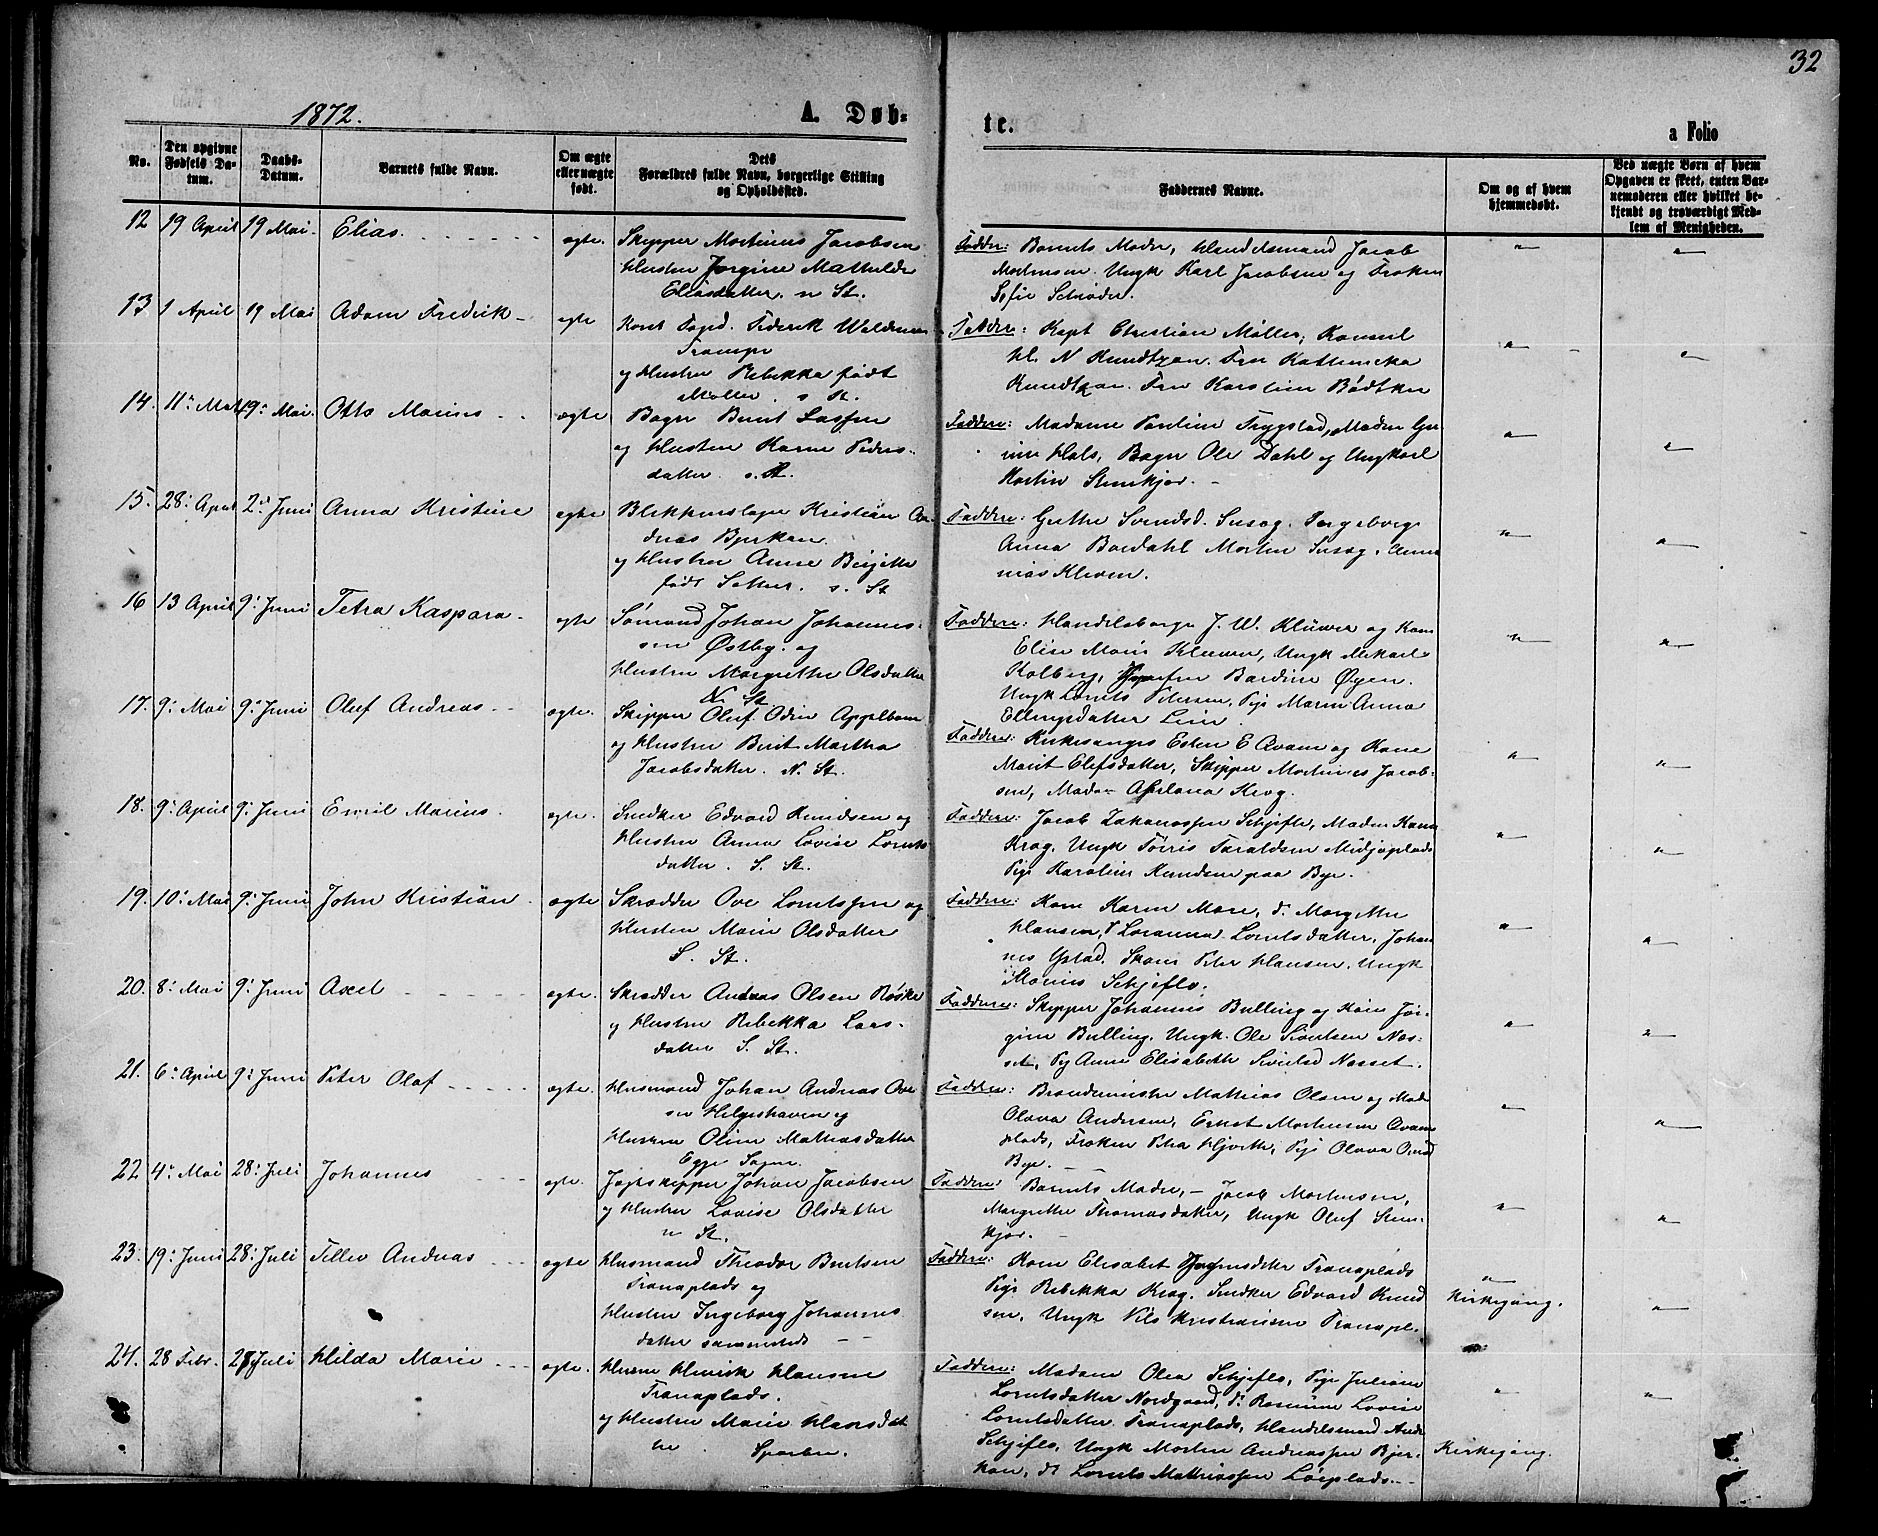 32
1872.
A. Døb-
te.
a Folio
No.
Den opgivne Fødsels Da-
tum.
Daabs-
Datum.
Barnets fulde Navn.
Om ægte
eller uægte
født.
Dets
Forældres fulde Navn, borgerlige Stilling
og Opholdssted.
Faddernes Navne.
Om og af hvem
hjemmedøbt.
Ved uægte Børn af hvem
Opgaven er skeet, enten Bar-
nemoderen eller hvilket be-
kjendt og troværdigt Med-
lem af Menigheden.
12 19 April 19 Mai. Elias. ægte. Skipper Mortinus Jacobsen
Hustru Jørgine Mathilde
Eliasdatter. n St.
Faddere: Barnets Moder, Handelsmand Jacob
Mortensen. Ungk Karl Jacobsen og Frøken
Sofie Schrøder.
13 1 April 19 Mai Adam Fredrik ægte
og Hustru Rebekka født
Møller. s St.
Faddere: Kapt Christian Møller, Konsul
H. N Kundtzon. Fru
Kundtzon. Fru Karoline Bødtker
14. 11te Mai 19. Mai. Otto Marius ægte Bager Bernt Lassen
og Hustru Karen Peders-
datter. s. St.
Faddere: Madame Pauline Trygstad, Madm
Hals, Bager Ole Dahl og Ungkarl
Martin Stenkjær.
15. 28. April 2. Juni Anna Kristine ægte Blikkenslager Kristian An-
dreas Bjerkan.
og Hustru Anne Birgitte
født s. St
Faddere: Grethe Svendsd. Susag. Ingeborg
Anna Bardahl Morten Susag.
Kleven.
16 13 April 9. Juni Petra Kaspara ægte Sømand Johan Johannes-
sen Østby. og
Hustru Margrethe Olsdatter
N St
Faddere: Handelsborger J. W. Klüwer og Kone
Elise Marie Klüwer, Ungk Mikael
Kolberg, Jomfru Bardine Øyen.
Ungk Lorents Petersen, Pige Maren Anna
Ellingsdatter Lein.
17. 9. Mai 9. Juni Oluf Andreas ægte. Skipper Oluf Odin Appelbom
og Hustru Berit Martha
Jacobsdatter. N. St.
Faddere: Kirkesanger Esten E Avam og Kone
Marit Olefsdatter, Skipper Mortinus Jacob-
sen, Madm Krog.
18. 9. April 9. Juni Emil Marius. ægte. Snedker Edvard Knudsen og
Hustru Anna Lovise Lorents
datter. S. St.
Faddere: Jacob Zakariassen Schjefte, Madm
Krog, Ungk Taraldsen Midjoplads
Pige Karoline Knudsen paa Bye.
19. 10. Mai 9. Juni John Kristian ægte Skrædder Ove Lorntsen og
Hustru Marie Olsdatter
S. St.
Faddere: Kone Karen Moe, d. Margrethe
Hansen, Lorntsdatter, Johan
nes Ystad, Skom Peter Hansen, Ungk
Marius Schjeflo.
20. 8. Mai 9. Juni Axel ægte. Skrædder Andreas Olsen Røske
og Hustru Rebekka Lars-
datter S. St.
Faddere: Skipper Johannes Bulling og Kone Jør-
gine Bulling, Ungk. Ole Sivertsen Næs-
set, Pg Anne Elisabeth Sivertsd Næsset.
21. 6. April 9. Juni Peter Olaf ægte. Husmand Johan Andreas Ove
sen Helgeshaven og
Hustru Oline Mathiasdatter
Egge Sogn.
Faddere: Brandmester Mathias Olsen og Mad.
Olava Andersen, Ernst Mortensen Avam
plads, Frøken Petra Hjorth, Pige Olava
Bye.
22 4. Mai 28. Juli Johannes ægte. Jagtskipper Johan Jacobsen
og Hustru Lovise Olsdatter
n St.
Faddere: Barnets Moder, Jacob Mortensen,
Margrethe Thomasdatter, Ungk Oluf Sten-
kjær.
23. 19. Juni 28. Juli Andreas ægte Husmand Theodor Berntsen
Tranaplads og
Hustru Ingeborg Johannes
datter sammesteds
Faddere: Kone Elisabet Tranaplads
Pige Rebekka Krog. Snedker Edvard Knud
sen, Ungk Nils Kristiansen Tranapl.
Kirkegang.
24. 28 Febr. 28 Juli Hilda Marie ægte. Husm Henrik Hansen
Tranaplads.
og Hustru Marie Hansdat
ter. Sparbu.
Faddere: Madam Olea Schjeflo, Pige Juliane
Lorntsdatter Nordgaard, d. Lovise
Lorntsdatter Tranaplads, Handelsmand
Schjeflo, Ungk Morten Andreassen Bjer-
kan, d. Lornts Mathiassen
Kirkegang.